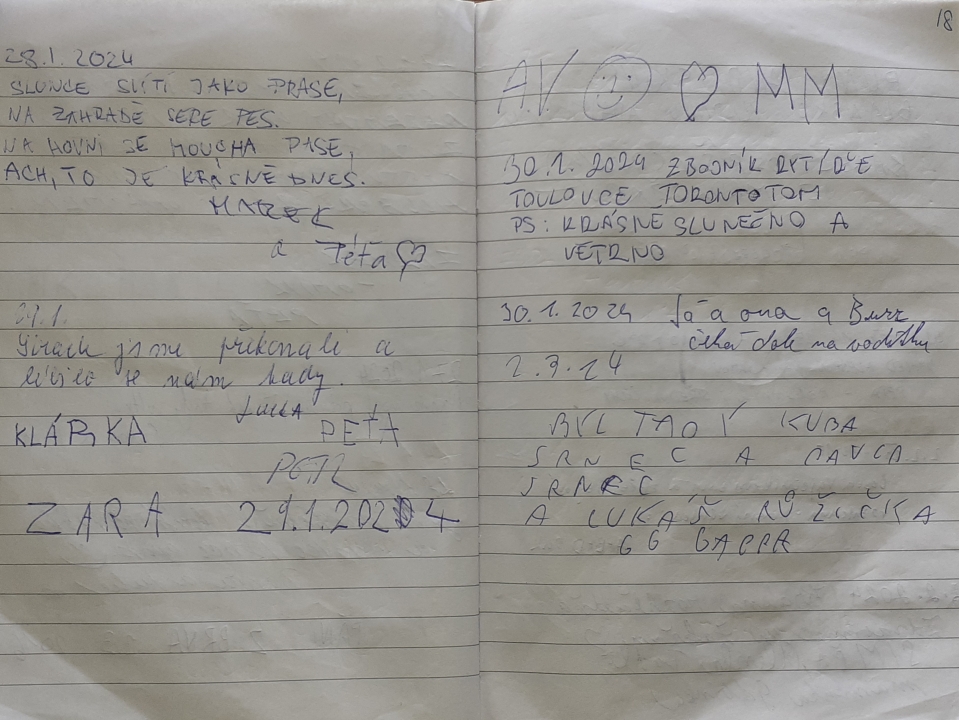 28.1.2024
SLUNCE SVÍTÍ JAKO PRASE,
NA ZAHRADĚ SERE PES.
NA HOVNĚ SE MOUCHA PASE,
ACH, TO JE KRÁSNĚ DNES.
MAREK
a Péťa
29.1.
jsme překonali a
se nám tady.
KLÁRKA PÉŤA
PETR
ZARA 29.1.2024
18
AV MM
30.1.2024 ZBOJNÍK RYTÍŘE
TOULOVCE TORONTOTOM
PS: KRÁSNĚ SLUNEČNO A
VĚTRNO
30.1.2024 Já a ona a
čeká dole na vodítku
2.3.24
BYL TADY KUBA
SRNEC A PAVLA
SRNEC
A LUKÁŠ RŮŽIČKA
GG